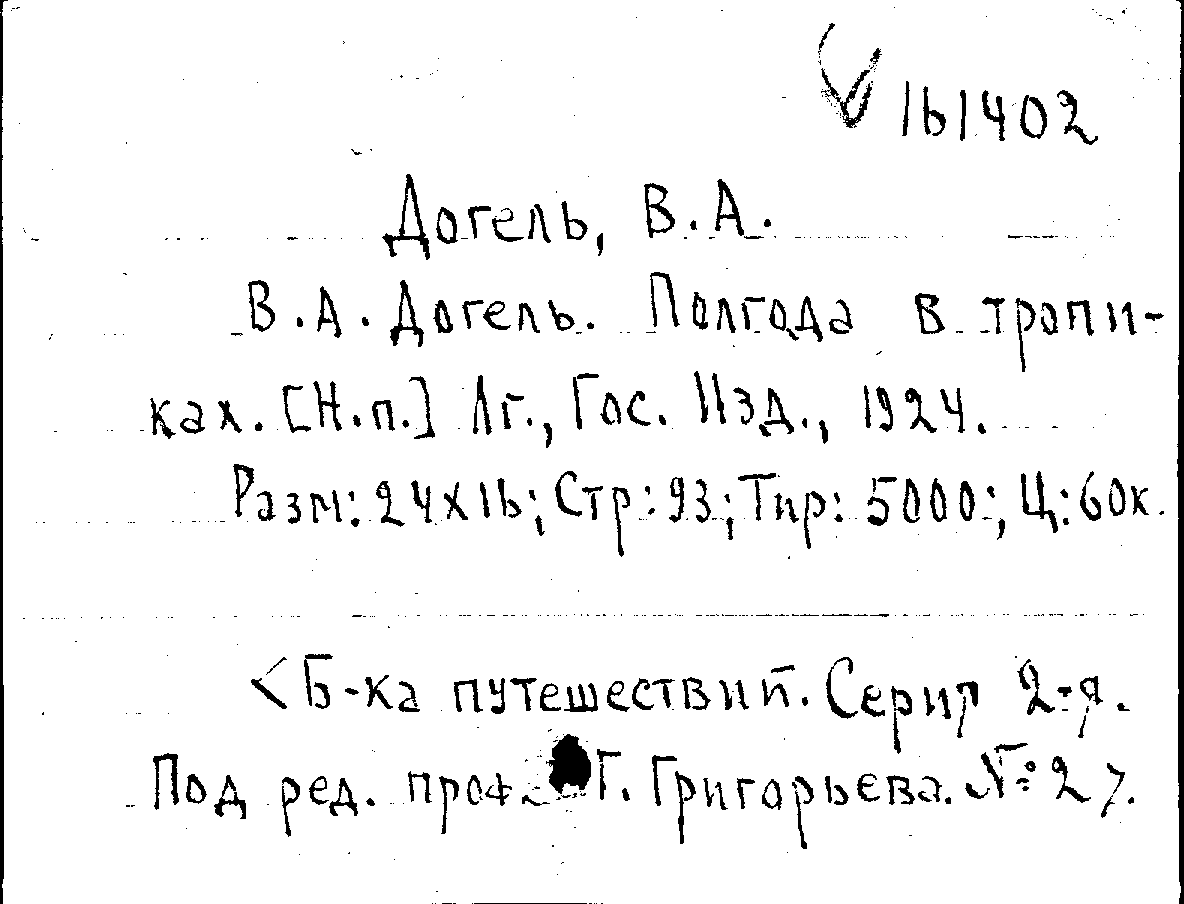 161402
Догель, В.А.
В.А. Догель. Полгода в тропи-
ках. [Н.п.] Лг., Гос. Изд., 1924.
Разм: 24х16; Стр: 93; Тир: 5000; Ц: 60к.
<Б-ка путешествий. Серия 2-я.
Под ред. проф. Г. Григорьева. № 27.